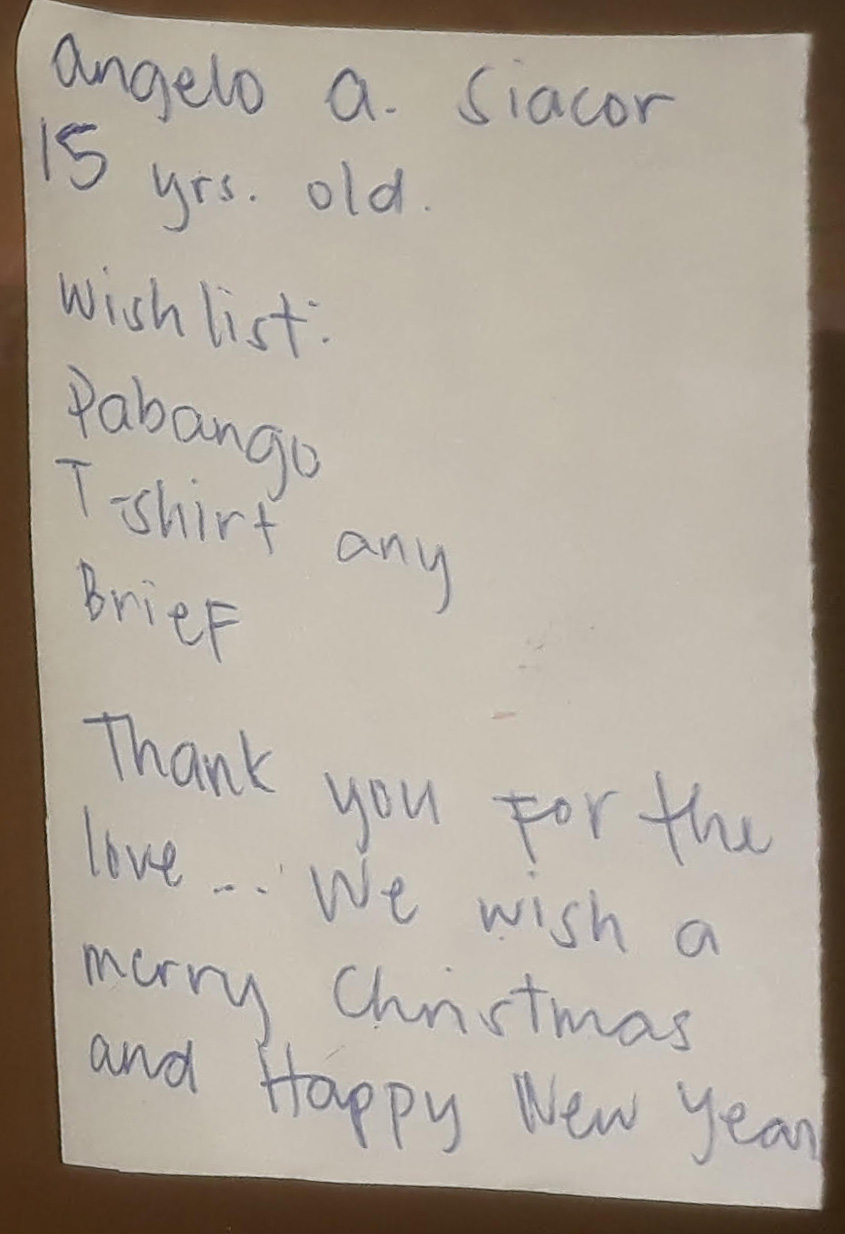 angelo a. Siacor
15 yrs. old.
wish list:
Pabango
T-shirt any
Brief
Thank you for the
love... We wish a
merry Christmas
and Happy New Year